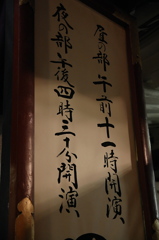 昼の部 午前十一時開演
夜の部 午後四時三十分開演